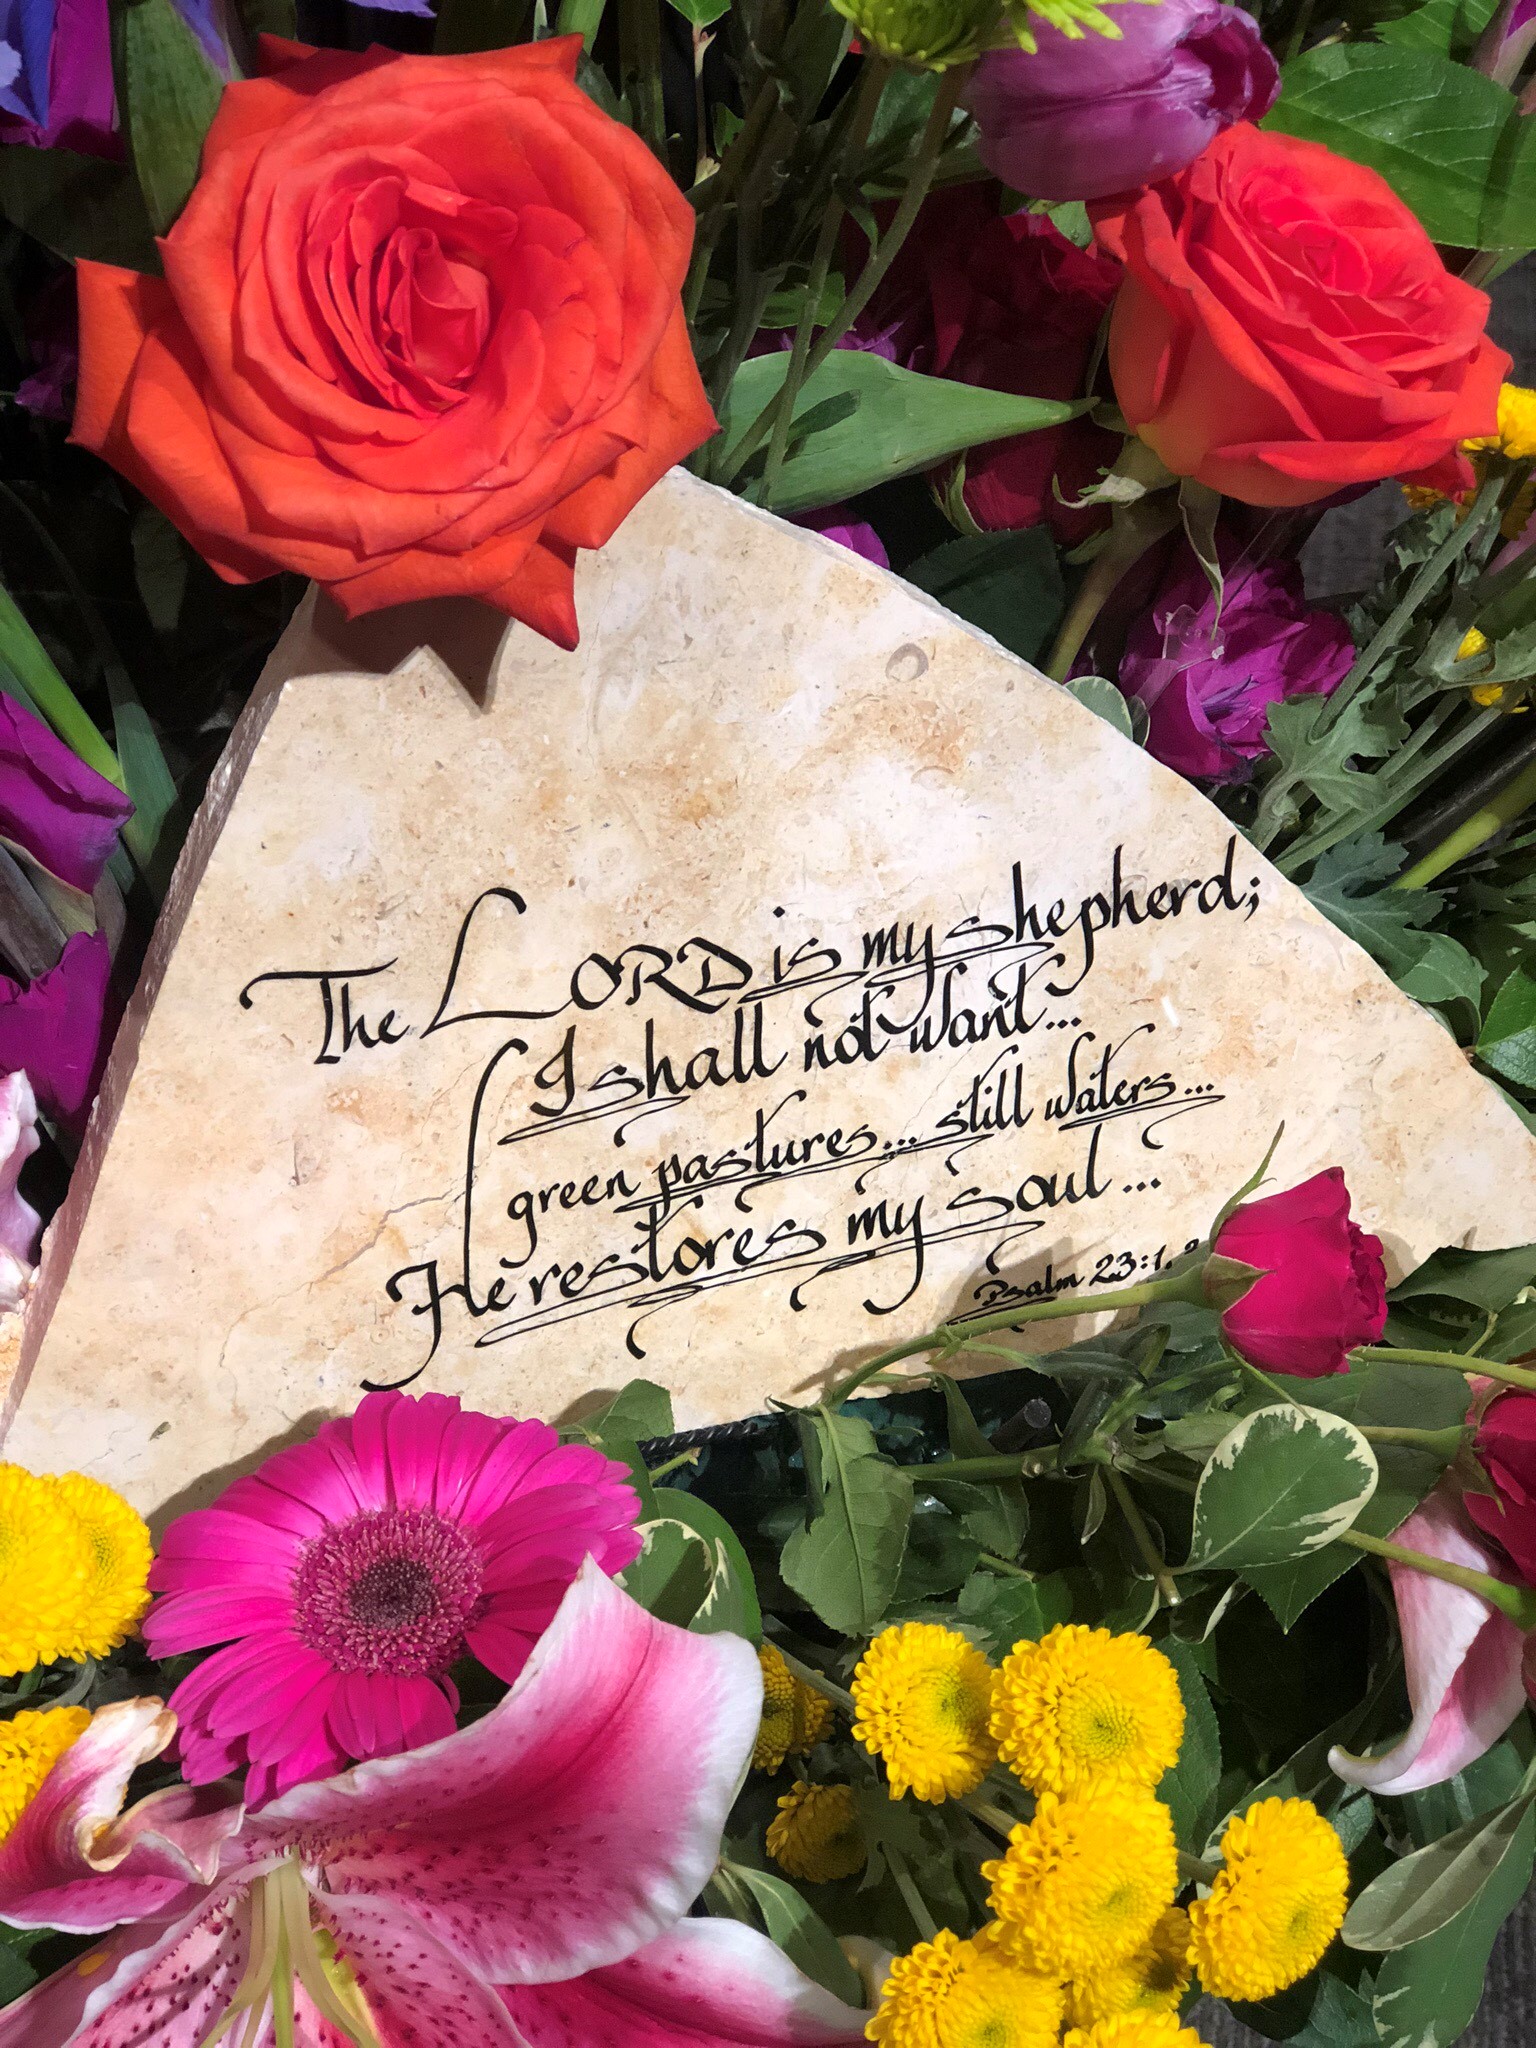 The LORD is my shepherd;
I shall not want...
green pastures... still waters...
He restores my soul...
Psalm 23:1,